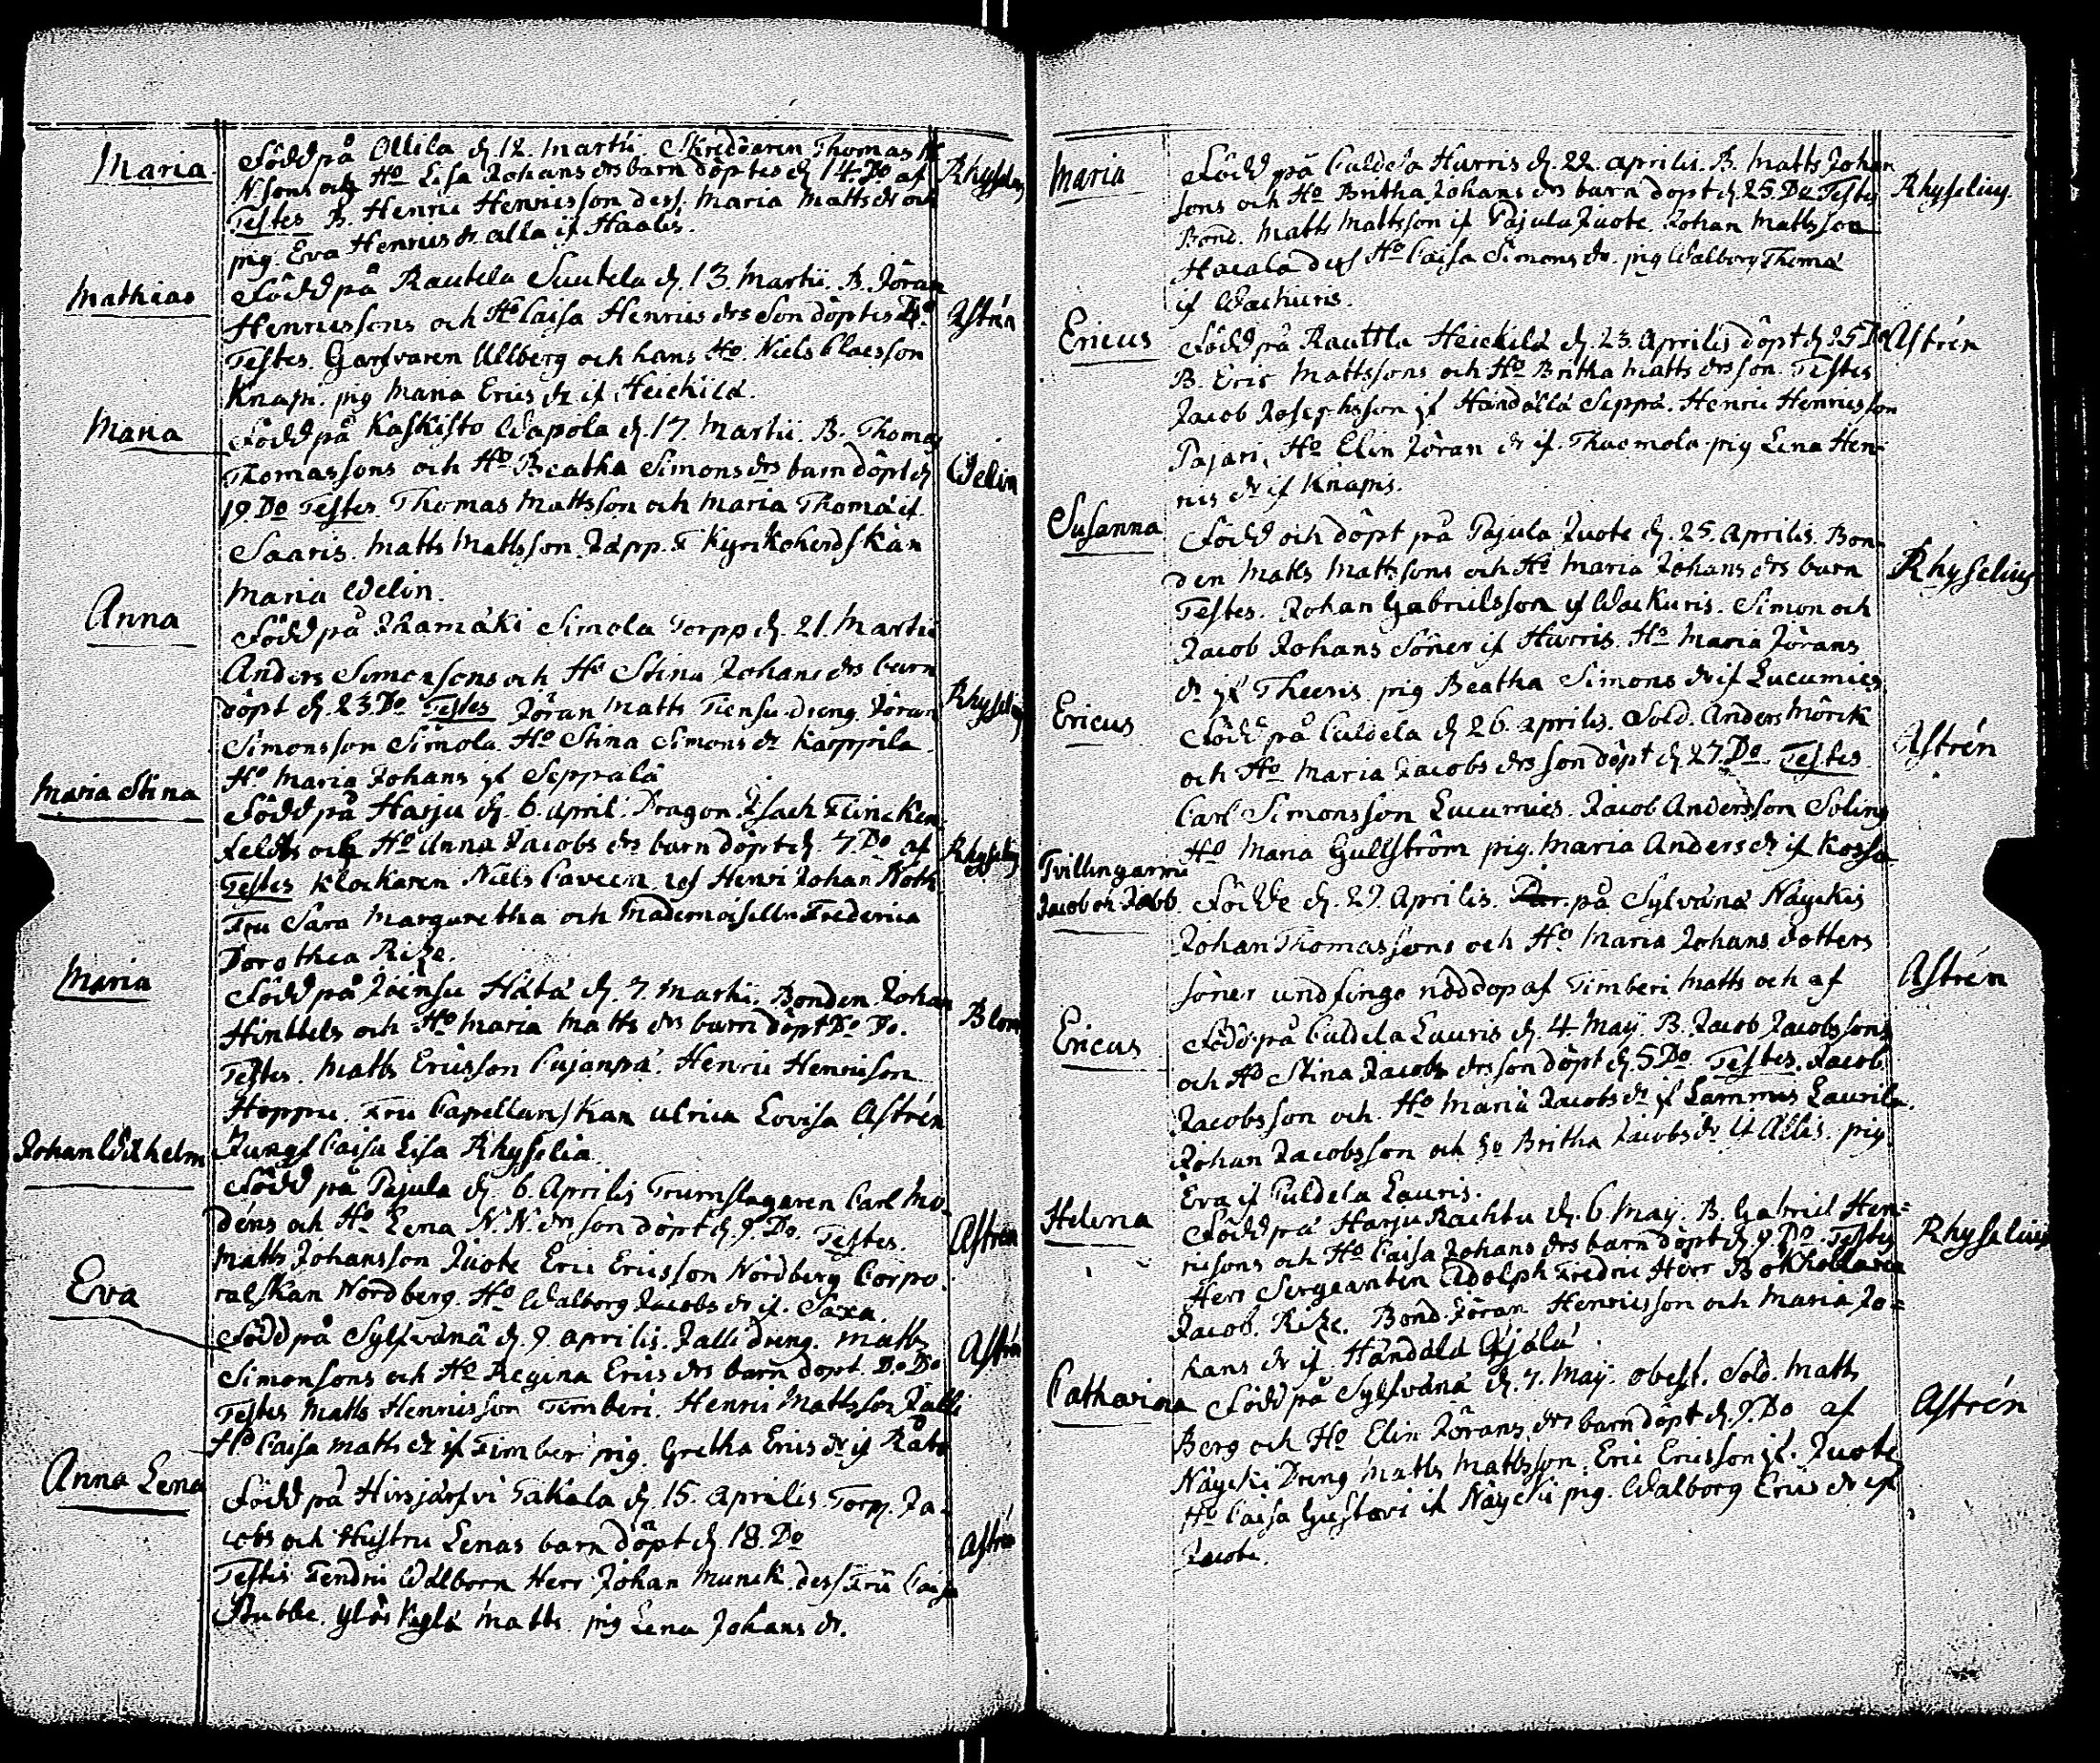 Maria
Född på Ollila d. 12. Martii. Skreddaren Thomas
Nsons och Ho Lisa Johans drs barn döptes d. 14. Do af
Rhyselius
Testes B. Henric Henricsson dess. Maria Matts dr och
pig. Eva Henrics dr. alla if Haalis.
Mathias
Född på Rautela Suutela d. 13. Martii. B. Jöran
Henricssons och Ho Caisa Henrics drs Son döptes Do
Astrén
Testes. Garfvaren Ullberg och hans Ho. Niels Claesson
Knapi. pig Maria Erics dr if Heickilä.
Maria
Född på Kaskisto Wapola d. 17. Martii. B. Thomas
Thomassons och Ho Beatha Simons drs barn döpt d.
Welin
19. Do Testes Thomas Mattsson och Maria Thomä if
Saaris. Matts Mattsson Japp. F Kyrkoherdskan
Maria Welin.
Anna
Född på Ihamäki Simola Torpp d. 21. Martii
Anders Simonsons och Ho Stina Johans drs barn
döpt d. 23. Do Testes Jöran Matts Tiensu dreng. Jöran
Rhyselius
Simonsson Simola. Ho Stina Simons dr Karppila
Ho Maria Johans if Seppälä
Maria Stina
Född på Harju d. 6. april. Dragon Isach Flincken
feldts och Ho Anna Jacobs drs barn döpt d. 7. Do af
Rhyselius
Testes Klockaren Niels Caveen, Henri Johan Roth
Fru Sara Margaretha och Mademoiselle Frederica
Dorothea Rize.
Maria
Född på Joensu Hätä d. 7. Martii. Bonden Johan
Hinttels och Ho Maria Matts drs barn döpt Do Do.
Blom
Testes. Matts Ericsson Cujanpä. Henric Henricson
Hoppu. Fru Capellanskan Ulrica Lovisa Astrén
Jungf Caisa Lisa Rhyselia.
Johan Wilhelm
Född på Pajula d. 6. Aprilis Trumslagaren Carl Mo-
déns och Ho Lena N.N. drs son döpt d. 9. Do. Testes.
Astrén
Matts Johansson Juote Eric Ericsson Nordberg Corpo-
ralskan Nordberg. Ho Walborg Jacobs dr if. Saxa.
Eva
Född på Sylfvänä d. 9. aprilis. Jalli dreng. Matts
Simonsons och Ho Regina Erics drs barn döpt. Do Do
Astrén
Testes Matts Henricsson Timberi. Henric Mattsson Jalli
Ho Caisa Matts dr if Timberi pig. Gretha Erics dr if
Anna Lena
Född på Hirsjärfvi Takala d. 15. aprilis. Torp. Ja-
cobs och Hustru Lenas barn döpt d. 18. Do
Astrén
Testes Fendric Wålborn Herr Johan Munck. dess Fru Caisa
Stubbe. Matts. pig Lena Johans dr.
Maria
Född på Culdela Hurris d. 22 aprilis. B. Matts Johan
sons och Ho Britha Johans drs barn döpt d. 25. Do Testes
Rhyselius.
Bond. Matts Mattsson if Pajula Juote. Johan Mattsson
Hacala dess Ho Caisa Simons dr. pig Walborg Thomä
if Wackuris.
Ericus
Född på Rauttla Heickilä d. 23. Aprilis döpt d. 25 Do
Astrén
B. Eric Mattssons och Ho Britha Matts drs son. Testes
Jacob Josephsson if Händälä Seppä. Henric Henricsson
Pajari, Ho Elin Jöran dr if. Thuomola pig Lena Hen-
rics dr if Knapis.
Susanna
Född och döpt på Pajula Juote d. 25. aprilis. Bon-
den Matts Mattssons och Ho Maria Johans drs barn
Rhyselius
Testes. Johan Gabrielsson if Wackuris. Simon och
Jacob Johans Söner if Hurris. Ho Maria Jörans
dr if Theeris pig Beatha Simons dr if Lucumies
Ericus
Född på Culdela d. 26. aprilis. Sold. Anders Mörck
och Ho Maria Jacobs drs son döpt d. 27. Do Testes.
Astrén
Carl Simonsson Lucumies. Jacob Andersson Soling
Ho Maria Gullström pig. Maria Anders dr if Kossa
Tvillingarne
Jacob och
Födde d. 29. Aprilis. på Sylvänä Näyckis
Johan Thomassons och Ho Maria Johans dotters
söner undfingo nöddop af Timberi Matts och af
Astrén
Ericus
Född på Culdela Lauris d. 4. May B. Jacob Jacobssons
och Ho Stina Jacobs drs son döpt d. 5. Do Testes. Jacob
Jacobsson och Ho Maria Jacobs dr if Lammis Laurila.
Johan Jacobsson och Ho Britha Jacobs dr if Allis. pig.
Eva if Culdela Lauris.
Helena
Född på Harju Rachtu d. 6 May. B. Gabriel Hen-
ricsons och Ho Caisa Johans drs barn döpt d. 9 Do. Testes
Rhyselius
Herr Sergeanten Adolph Fredric Herr Bokhollaren
Jacob. Rize. Bond. Jöran Henricsson och Maria Jo-
hans dr if. Händälä Äijälä.
Catharina
Född på Sylfvänä d. 7. May. obest. Sold. Matts
Berg och Ho Elin Jörans drs barn döpt d. 9. Do af
Astrén
Näycki Dreng Matts Mattsson. Eric Ericsson if. Juote
Ho Caisa Gustavi if Näycki pig. Walborg Erics dr if
Juote.